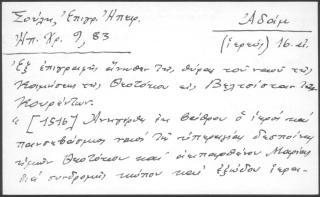 Σούλης, Ἐπιγρ. Ἠπειρ.
Ἠπ. Χρ. 9, 83
Ἀδάμ
(ἱερεύς) 16. αἰ.
Ἐξ ἐπιγραφῆς ἄνωθεν τῆς θύρας τοῦ ναοῦ τῆς
Κοιμήσεως τῆς Θεοτόκου εἰς Βελτσίσταν τῶν
Κουρέντων.
« [1516] Ἀνηγέρθη ἐκ βάθρου ὁ ἱερός καί
πανσεβάσμιος ναός τῆς ὑπεραγίας δεσποίνης
ἡμῶν Θεοτόκου καί ἀειπαρθένου Μαρίας
διά συνδρομῆς κόπου καί ἐξόδου ἱερο-